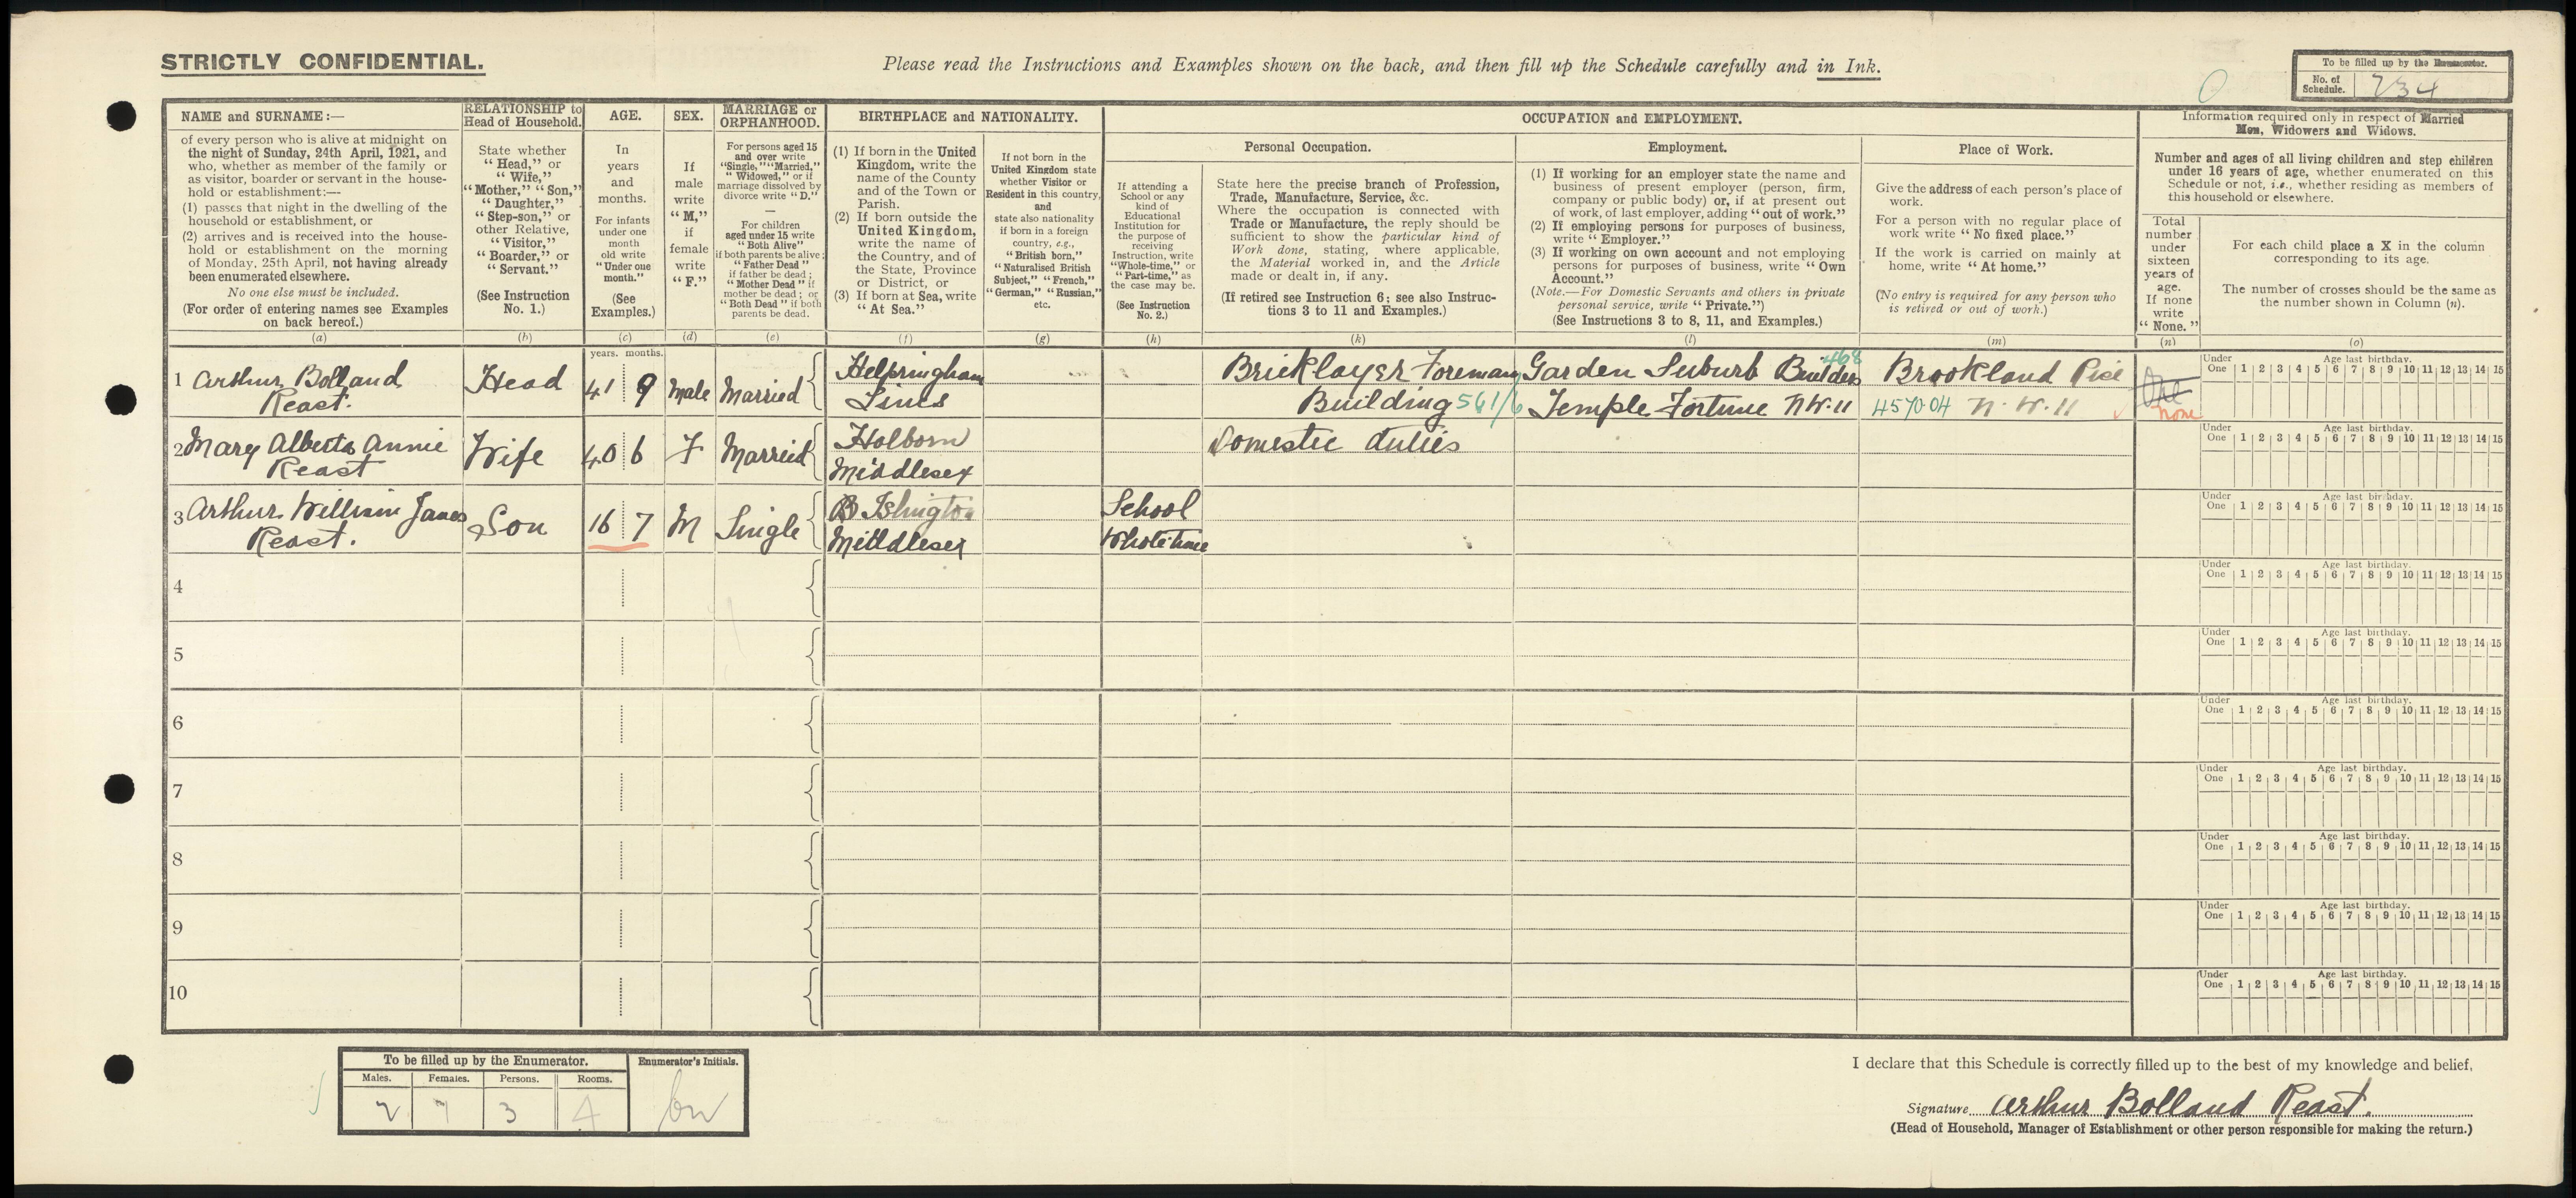 STRICTLY CONFIDENTIAL.
Please read the Instructions and Examples shown on the back, and then fill up the Schedule carefully and in Ink.
To be filled up by the Enumerator.
No. of Schedule. 234
NAME and SURNAME:—
of every person who is alive at midnight on
the night of Sunday, 24th April, 1921, and
who, whether as member of the family or
as visitor, boarder or servant in the house-
hold or establishment:—
(1) passes that night in the dwelling of the
household or establishment, or
(2) arrives and is received into the house-
hold or establishment on the morning
of Monday, 25th April, not having already
been enumerated elsewhere.
No one else must be included.
(For order of entering names see Examples
on back hereof.)
(a)
RELATIONSHIP to
Head of Household.
State whether
"Head," or
"Wife,"
"Mother," "Son,"
"Daughter,"
"Step-son," or
other Relative,
"Visitor,"
"Boarder," or
"Servant."
(See Instruction
No. 1.)
(b)
AGE.
In
years
and
months.
For infants
under one
month
old write
"Under one
month."
(See
Examples.)
(c)
SEX.
If
male
write
"M,"
if
female
write
"F."
(d)
MARRIAGE or
ORPHANHOOD.
For persons aged 15
and over write
"Single," "Married,"
"Widowed," or if
marriage dissolved by
divorce write "D."
—
For children
aged under 15 write
"Both Alive"
if both parents be alive;
"Father Dead"
if father be dead;
"Mother Dead" if
mother be dead; or
"Both Dead" if both
parents be dead.
(e)
BIRTHPLACE and NATIONALITY.
(1) If born in the United
Kingdom, write the
name of the County
and of the Town or
Parish.
(2) If born outside the
United Kingdom,
write the name of
the Country, and of
the State, Province
or District, or
(3) If born at Sea, write
"At Sea."
(f)
If not born in the
United Kingdom state
whether Visitor or
Resident in this country,
and
state also nationality
if born in a foreign
country, e.g.,
"British born,"
"Naturalised British
Subject," "French,"
"German," "Russian,"
etc.
(g)
OCCUPATION and EMPLOYMENT.
If attending a
School or any
kind of
Educational
Institution for
the purpose of
receiving
Instruction, write
"Whole-time," or
"Part-time," as
the case may be.
(See Instruction
No. 2.)
(h)
Personal Occupation.
State here the precise branch of Profession,
Trade, Manufacture, Service, &c.
Where the occupation is connected with
Trade or Manufacture, the reply should be
sufficient to show the particular kind of
Work done, stating, where applicable,
the Material worked in, and the Article
made or dealt in, if any.
(If retired see Instruction 6; see also Instruc-
tions 3 to 11 and Examples.)
(k)
Employment.
(1) If working for an employer state the name and
business of present employer (person, firm,
company or public body) or, if at present out
of work, of last employer, adding "out of work."
(2) If employing persons for purposes of business,
write "Employer."
(3) If working on own account and not employing
persons for purposes of business, write "Own
Account."
(Note.—For Domestic Servants and others in private
personal service, write "Private.")
(See Instructions 3 to 8, 11, and Examples.)
(l)
Place of Work.
Give the address of each person's place of
work.
For a person with no regular place of
work write "No fixed place."
If the work is carried on mainly at
home, write "At home."
(No entry is required for any person who
is retired or out of work.)
(m)
Information required only in respect of Married
Men, Widowers and Widows.
Number and ages of all living children and step children
under 16 years of age, whether enumerated on this
Schedule or not, i.e., whether residing as members of
this household or elsewhere.
Total
number
under
sixteen
years of
age.
If none
write
"None."
(n)
For each child place a X in the column
corresponding to its age.
The number of crosses should be the same as
the number shown in Column (n).
(o)
years. months.
1 Arthur Bolland Reast. Head 41 9 Male Married Helpringham Lincs Bricklayer Foreman Building 561/6 Garden Suburb Builders 468 Temple Fortune N.W.11 Brookland Rise 45704 N.W.11 One none
Under One Age last birthday. 1 2 3 4 5 6 7 8 9 10 11 12 13 14 15
2 Mary Alberta Annie Reast Wife 40 6 F Married Holborn Middlesex Domestic duties
Under One Age last birthday. 1 2 3 4 5 6 7 8 9 10 11 12 13 14 15
3 Arthur William James Reast. Son 16 7 M Single Islington Middlesex School Whole time
Under One Age last birthday. 1 2 3 4 5 6 7 8 9 10 11 12 13 14 15
4
Under One Age last birthday. 1 2 3 4 5 6 7 8 9 10 11 12 13 14 15
5
Under One Age last birthday. 1 2 3 4 5 6 7 8 9 10 11 12 13 14 15
6
Under One Age last birthday. 1 2 3 4 5 6 7 8 9 10 11 12 13 14 15
7
Under One Age last birthday. 1 2 3 4 5 6 7 8 9 10 11 12 13 14 15
8
Under One Age last birthday. 1 2 3 4 5 6 7 8 9 10 11 12 13 14 15
9
Under One Age last birthday. 1 2 3 4 5 6 7 8 9 10 11 12 13 14 15
10
Under One Age last birthday. 1 2 3 4 5 6 7 8 9 10 11 12 13 14 15
To be filled up by the Enumerator.
Enumerator's Initials.
Males. Females. Persons. Rooms.
2 1 3 4
I declare that this Schedule is correctly filled up to the best of my knowledge and belief,
Signature Arthur Bolland Reast.
(Head of Household, Manager of Establishment or other person responsible for making the return.)